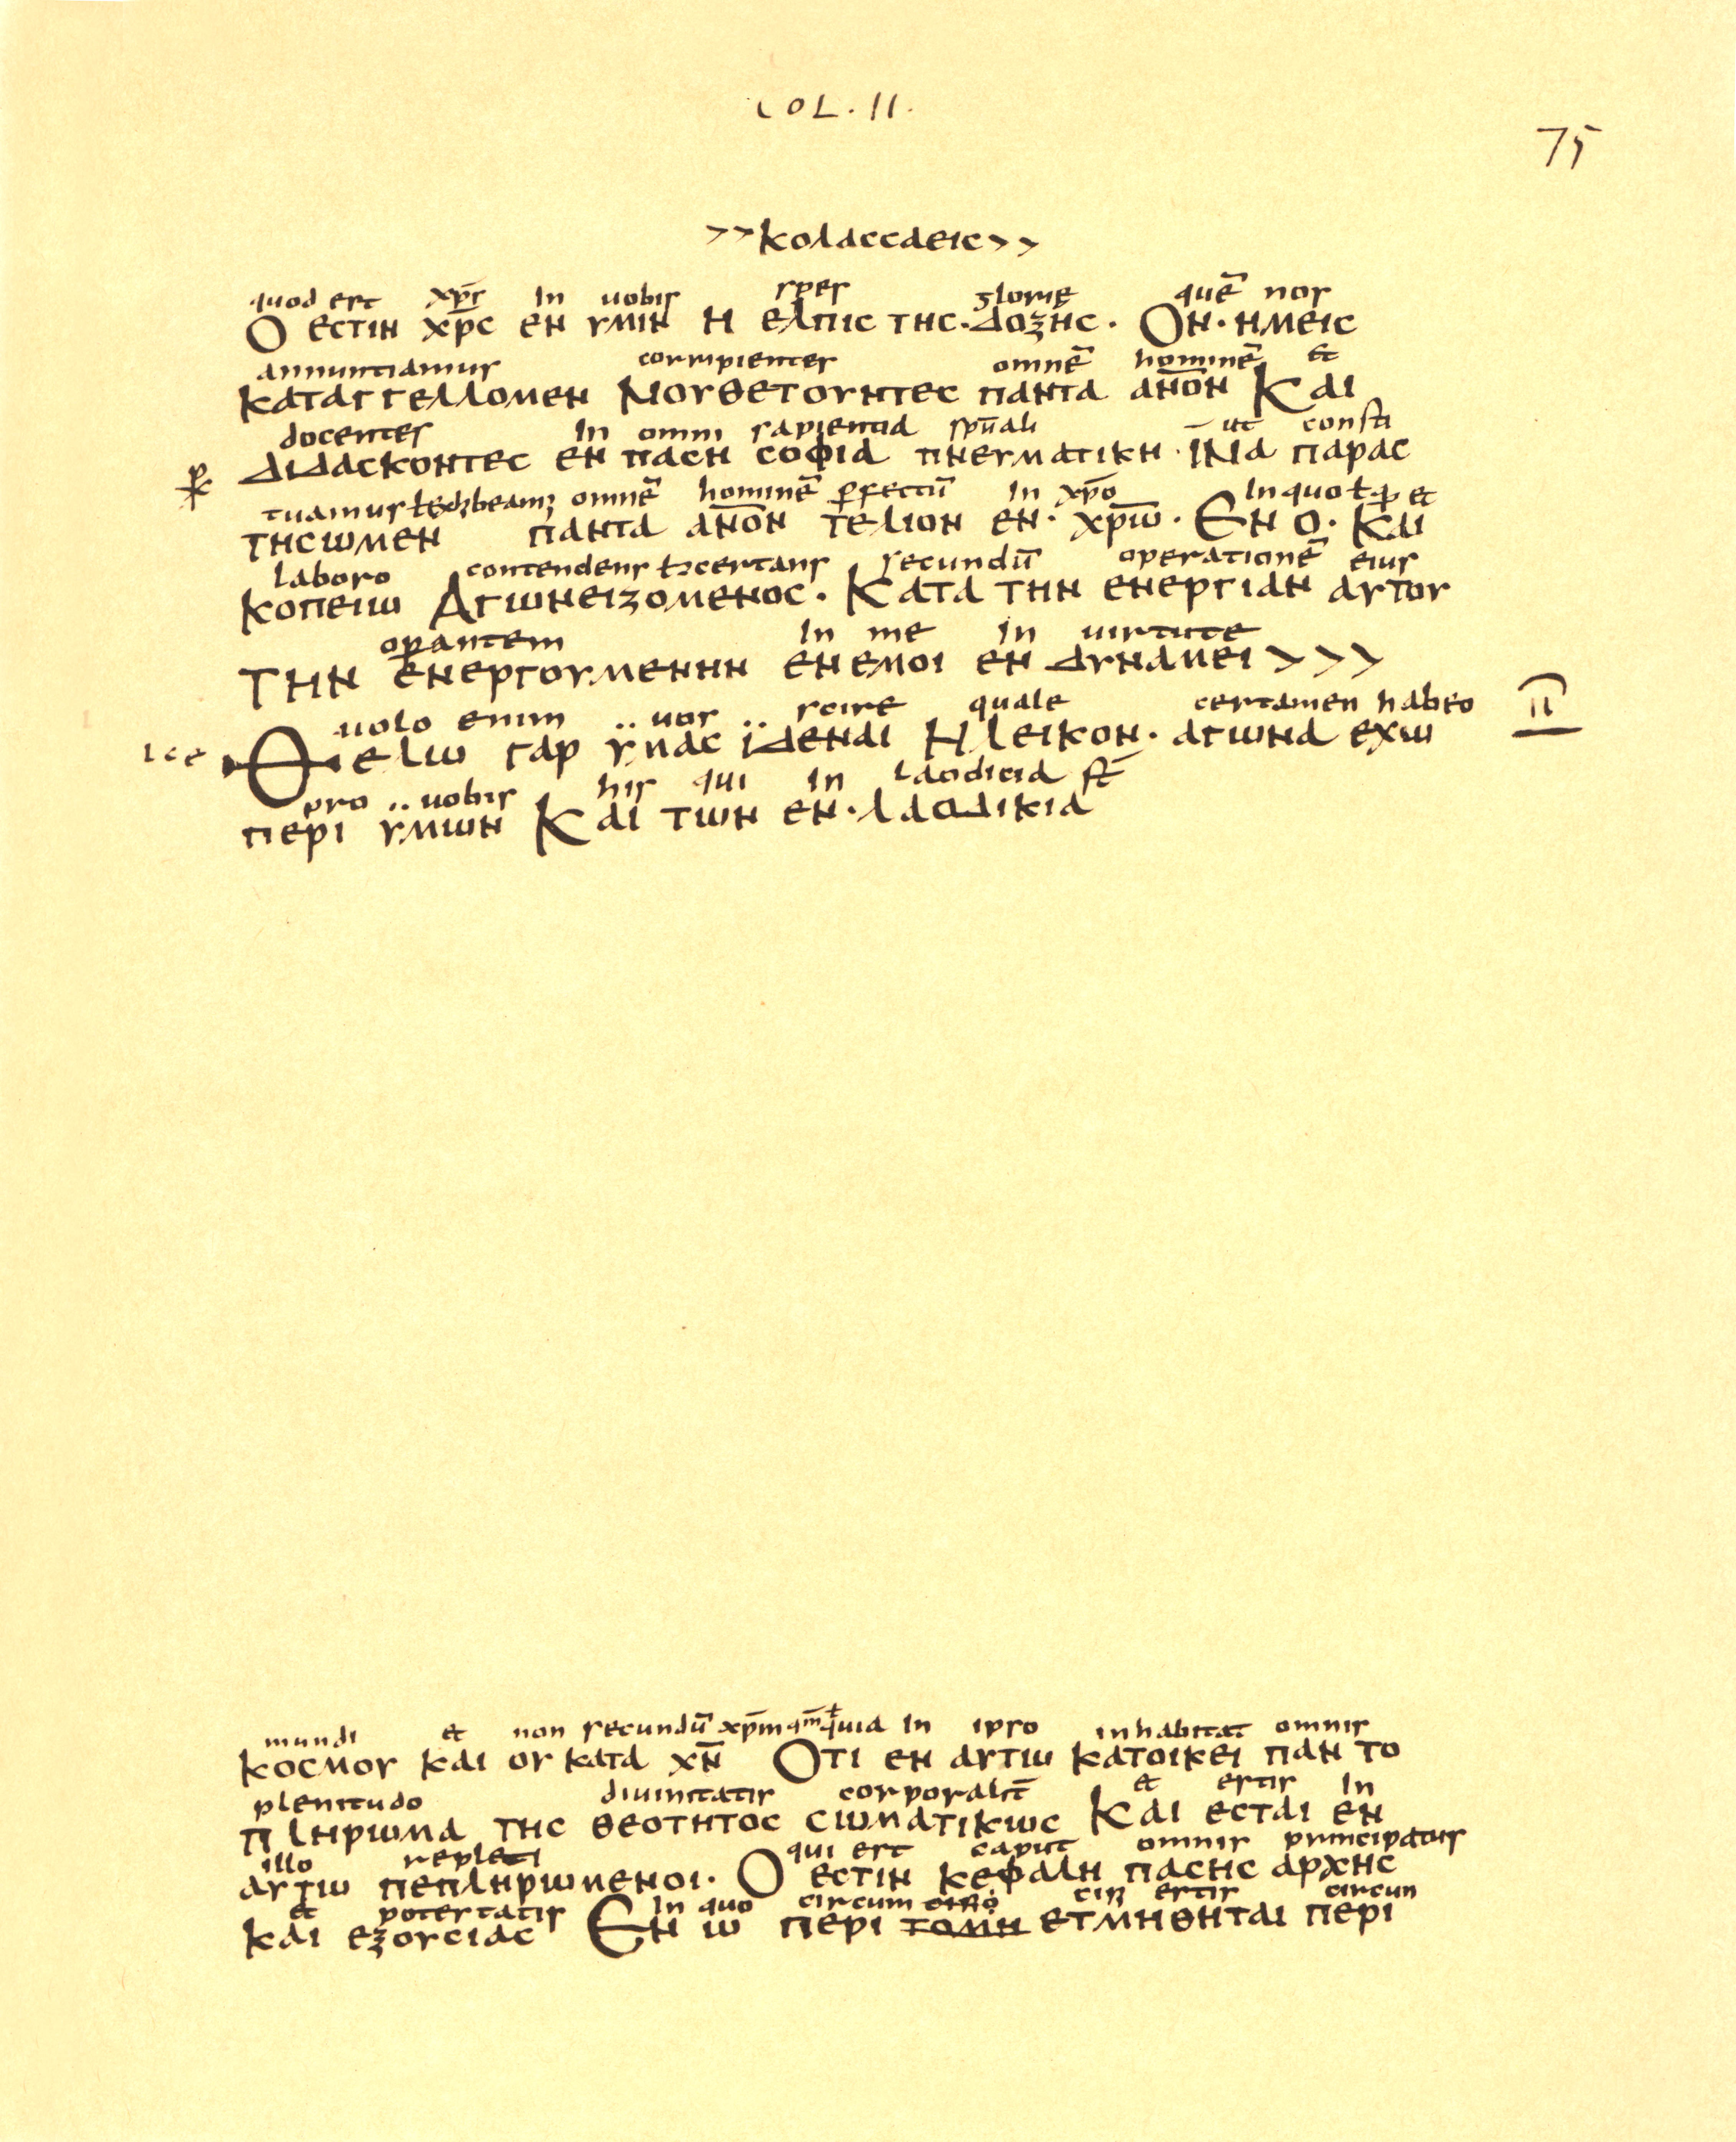 COL. II.
75
>>κολασσαεις>>
quod est xp̄s In uobis spes glorie quē nos
Ο εστιν χρ̄ς εν υμιν η ελπις της·δοξης· Ον·ημεις
annuntiamus corripientes omnē hominē et
καταγγελλομεν Νουθετουντες παντα ανον Και
docentes In omni sapientia spūali ut consti
διδασκοντες εν παση σοφια πνευματικη·Ινα παρασ
tuamus omnē hominē perfectū In xpo
τησωμεν παντα ανον τελιον εν·χρω· Εν ο· Και
laboro contendens certans secundū operationē eius
κοπειω Αγωνειζομενος· Κατα την ενεργιαν αυτου
operantem In me In uirtute
Την ενεργουμενην εν εμοι εν δυναμει>>>
uolo enim uos scire quale certamen habeo II
Θελω γαρ υμας ϊδεναι Ηλεικον· αγωνα εχω
pro uobis his qui In laodicia st̄
περι υμων Και των εν·λαοδικια
mundi et non secundū xpm quia In ipso inhabitat omnis
κοσμου και ου κατα χν̄ Οτι εν αυτω κατοικει παν το
plenitudo diuinitatis corporalit̄ et estis In
πληρωμα της θεοτητος σωματικως Και εσται εν
illo repleti qui est caput omnis principatus
αυτω πεπληρωμενοι· Ο εστιν κεφαλη πασης αρχης
et potestatis In quo circum estis circun
και εξουσιας Εν ω περι τομη ετμηθηται περι